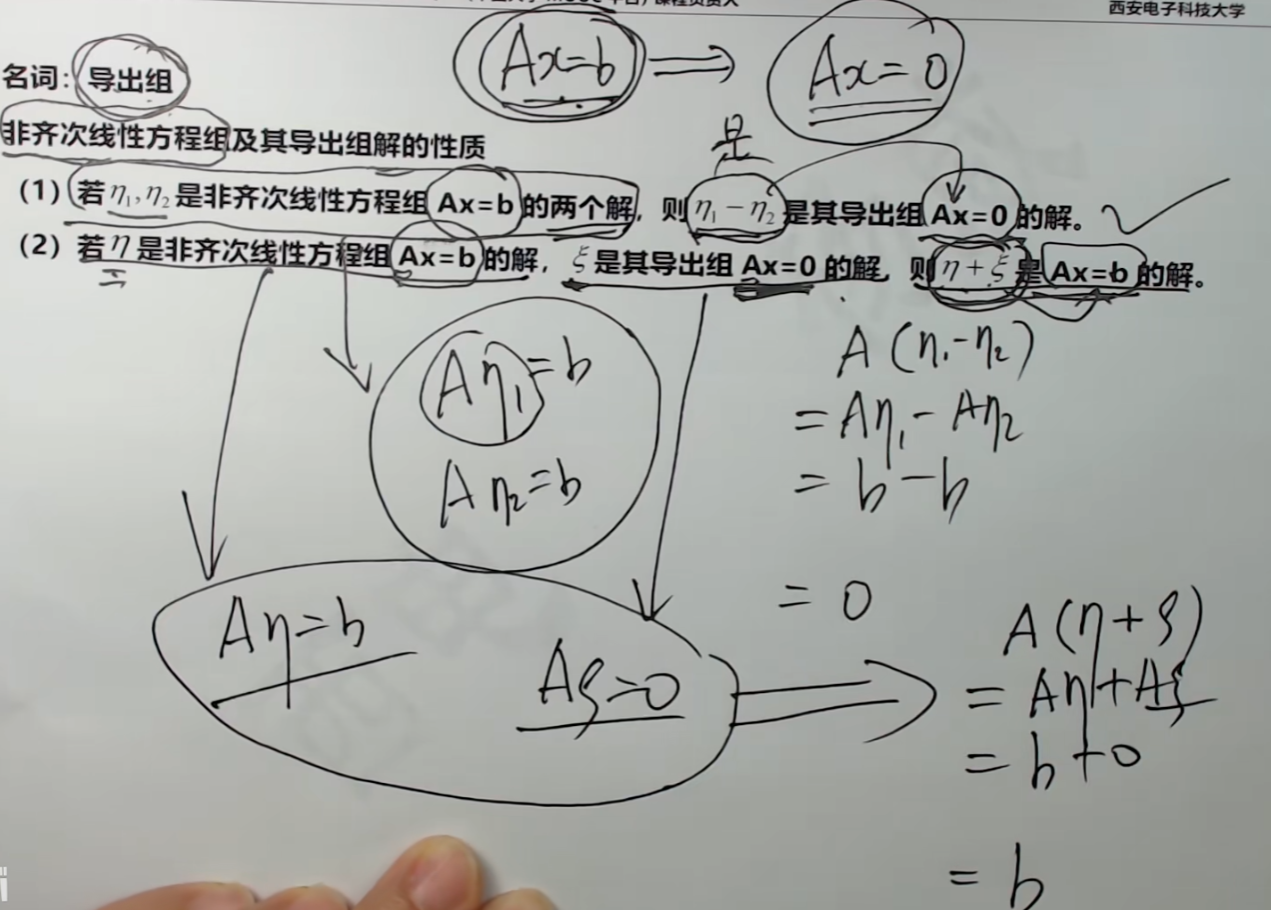 西安电子科技大学
Ax=b ⟹ Ax=0
名词：导出组
非齐次线性方程组及其导出组解的性质
是
（1）若η₁,η₂是非齐次线性方程组Ax=b的两个解，则η₁−η₂是其导出组Ax=0的解。
（2）若η是非齐次线性方程组Ax=b的解，ξ是其导出组Ax=0的解，则η+ξ是Ax=b的解。
Aη₁=b
Aη₂=b
A(η₁-η₂)
=Aη₁-Aη₂
=b-b
=0
Aη=b
Aξ=0
A(η+ξ)
=Aη+Aξ
=b+0
=b